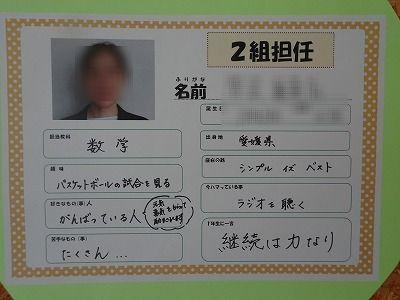 2組担任
ふりがな
名前
誕生日
担当教科
数学
出身地
愛媛県
趣味
バスケットボールの試合を見る
座右の銘
シンプル イズ ベスト
好きなもの(事)人
がんばっている人
元気
勇気をもらって
助かっています
今ハマっている事
ラジオを聴く
苦手なもの(事)
たくさん…
1年生に一言
継続は力なり